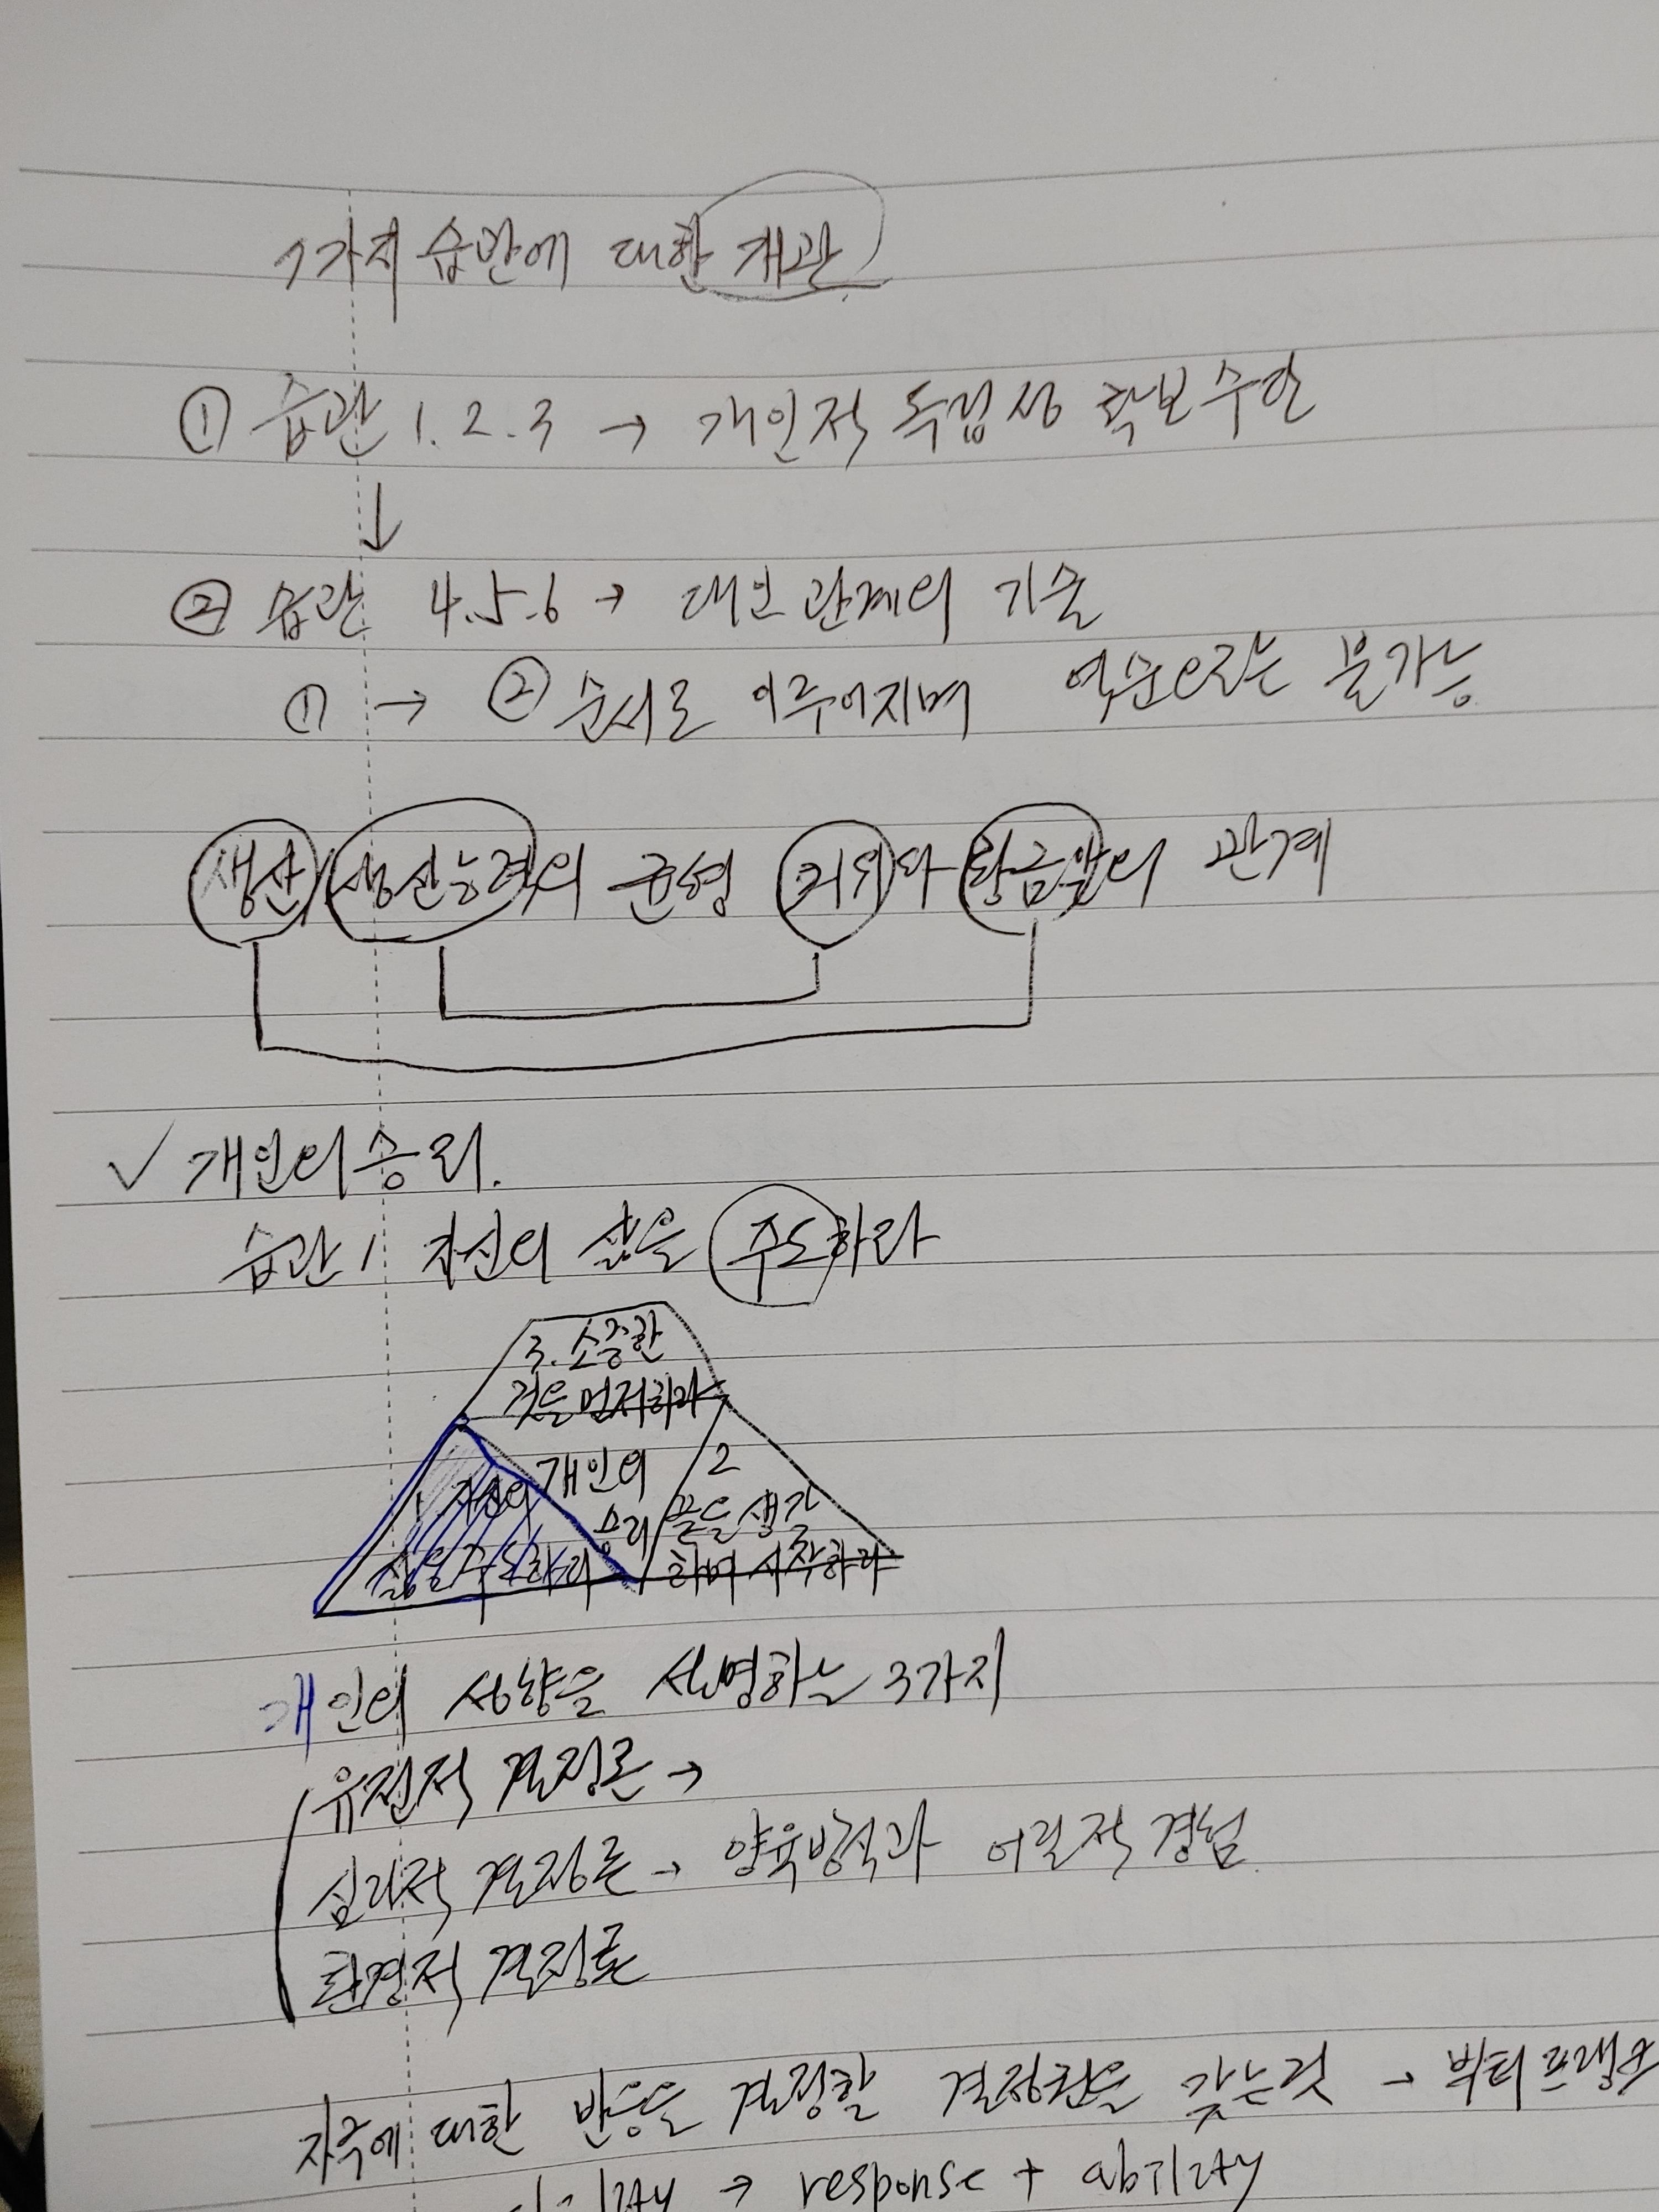 7가지 습관에 대한 개관
① 습관 1.2.3 → 개인적 독립성 확보수단
↓
② 습관 4.5.6 → 대인관계의 기술
① → ② 순서로 이루어지며 역순으로는 불가능
생산/생산능력의 균형 거위와 황금알의 관계
✓ 개인의 승리.
습관 1 자신의 삶을 주도하라
3. 소중한
것을 먼저하라
1. 자신의
삶을 주도하라
개인의
승리
2
끝을 생각
하며 시작하라
개인의 성향을 설명하는 3가지
유전적 결정론 →
심리적 결정론 → 양육방식과 어릴적 경험.
환경적 결정론
자극에 대한 반응을 결정할 결정권을 갖는것 → 빅터 프랭클
→ response + ability